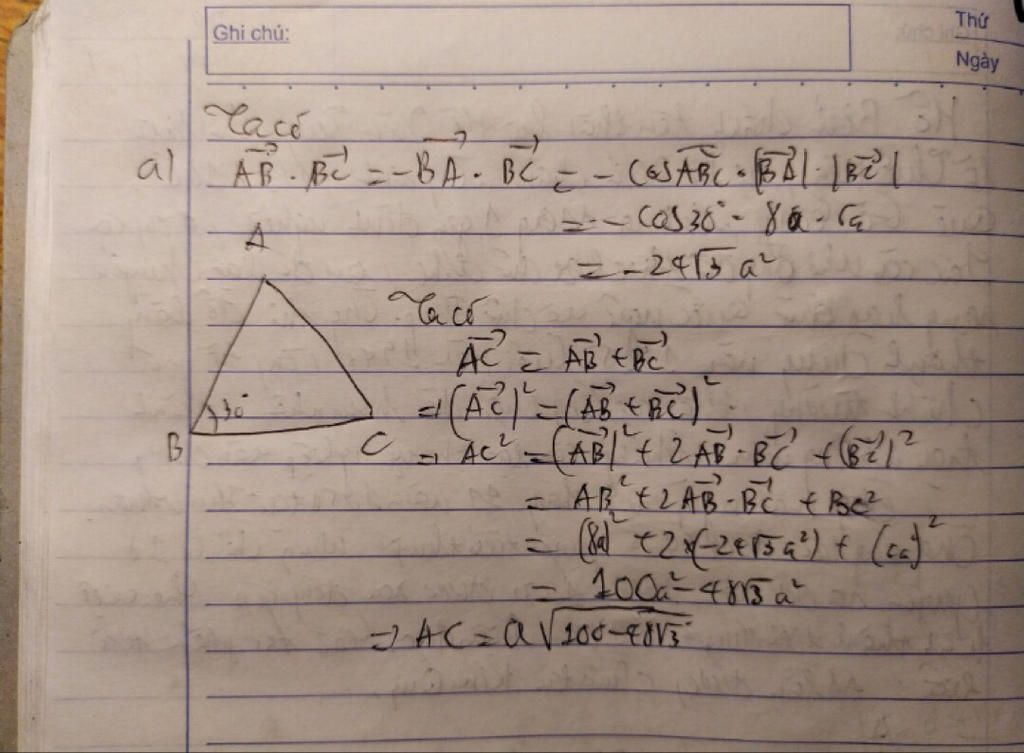 Ghi chú:
Thứ
Ngày
Ta có
a) $\overrightarrow{AB} \cdot \overrightarrow{BC} = -\overrightarrow{BA} \cdot \overrightarrow{BC} = -\cos \widehat{ABC} \cdot |\overrightarrow{BA}| \cdot |\overrightarrow{BC}|$
$= -\cos 30^\circ \cdot 8a \cdot 6a$
$= -24\sqrt{3} a^2$
A
30°
B
C
Ta có
$\overrightarrow{AC} = \overrightarrow{AB} + \overrightarrow{BC}$
$\Rightarrow (\overrightarrow{AC})^2 = (\overrightarrow{AB} + \overrightarrow{BC})^2$
$\Rightarrow AC^2 = (\overrightarrow{AB})^2 + 2\overrightarrow{AB} \cdot \overrightarrow{BC} + (\overrightarrow{BC})^2$
$= AB^2 + 2\overrightarrow{AB} \cdot \overrightarrow{BC} + BC^2$
$= (8a)^2 + 2 \times (-24\sqrt{3} a^2) + (6a)^2$
$= 100a^2 - 48\sqrt{3} a^2$
$\Rightarrow AC = a\sqrt{100 - 48\sqrt{3}}$